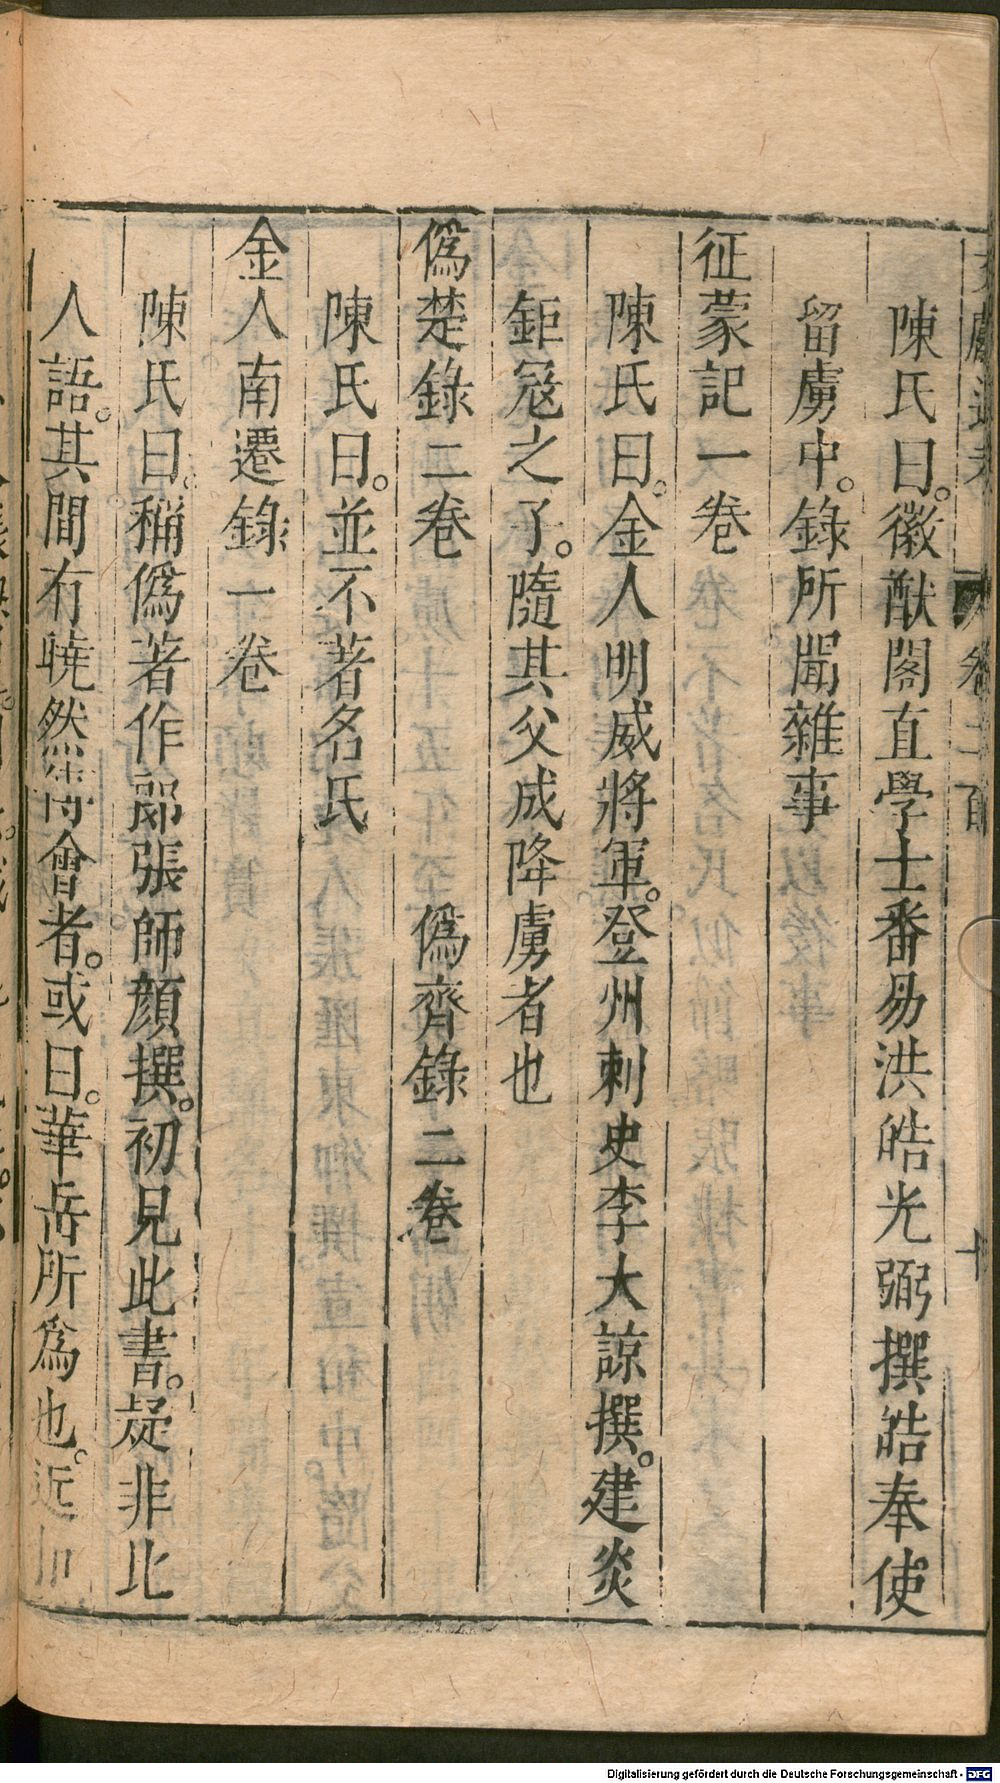 陳氏曰。徽猷閣直學士番昜洪皓光弼撰皓奉使
留虜中。錄所聞雜事
征蒙記一卷
陳氏曰。金人明威將軍。登州刺史李大諒撰。建炎
鉅寇之子。隨其父成降虜者也
僞楚錄二卷 僞齊錄二卷
陳氏曰。並不著名氏
金人南遷錄一卷
陳氏曰。稱僞著作郎張師顔撰。初見此書。疑非北
人語。其間有曉然傅會者。或曰。華岳所爲也。近
Digitalisierung gefördert durch die Deutsche Forschungsgemeinschaft - DFG